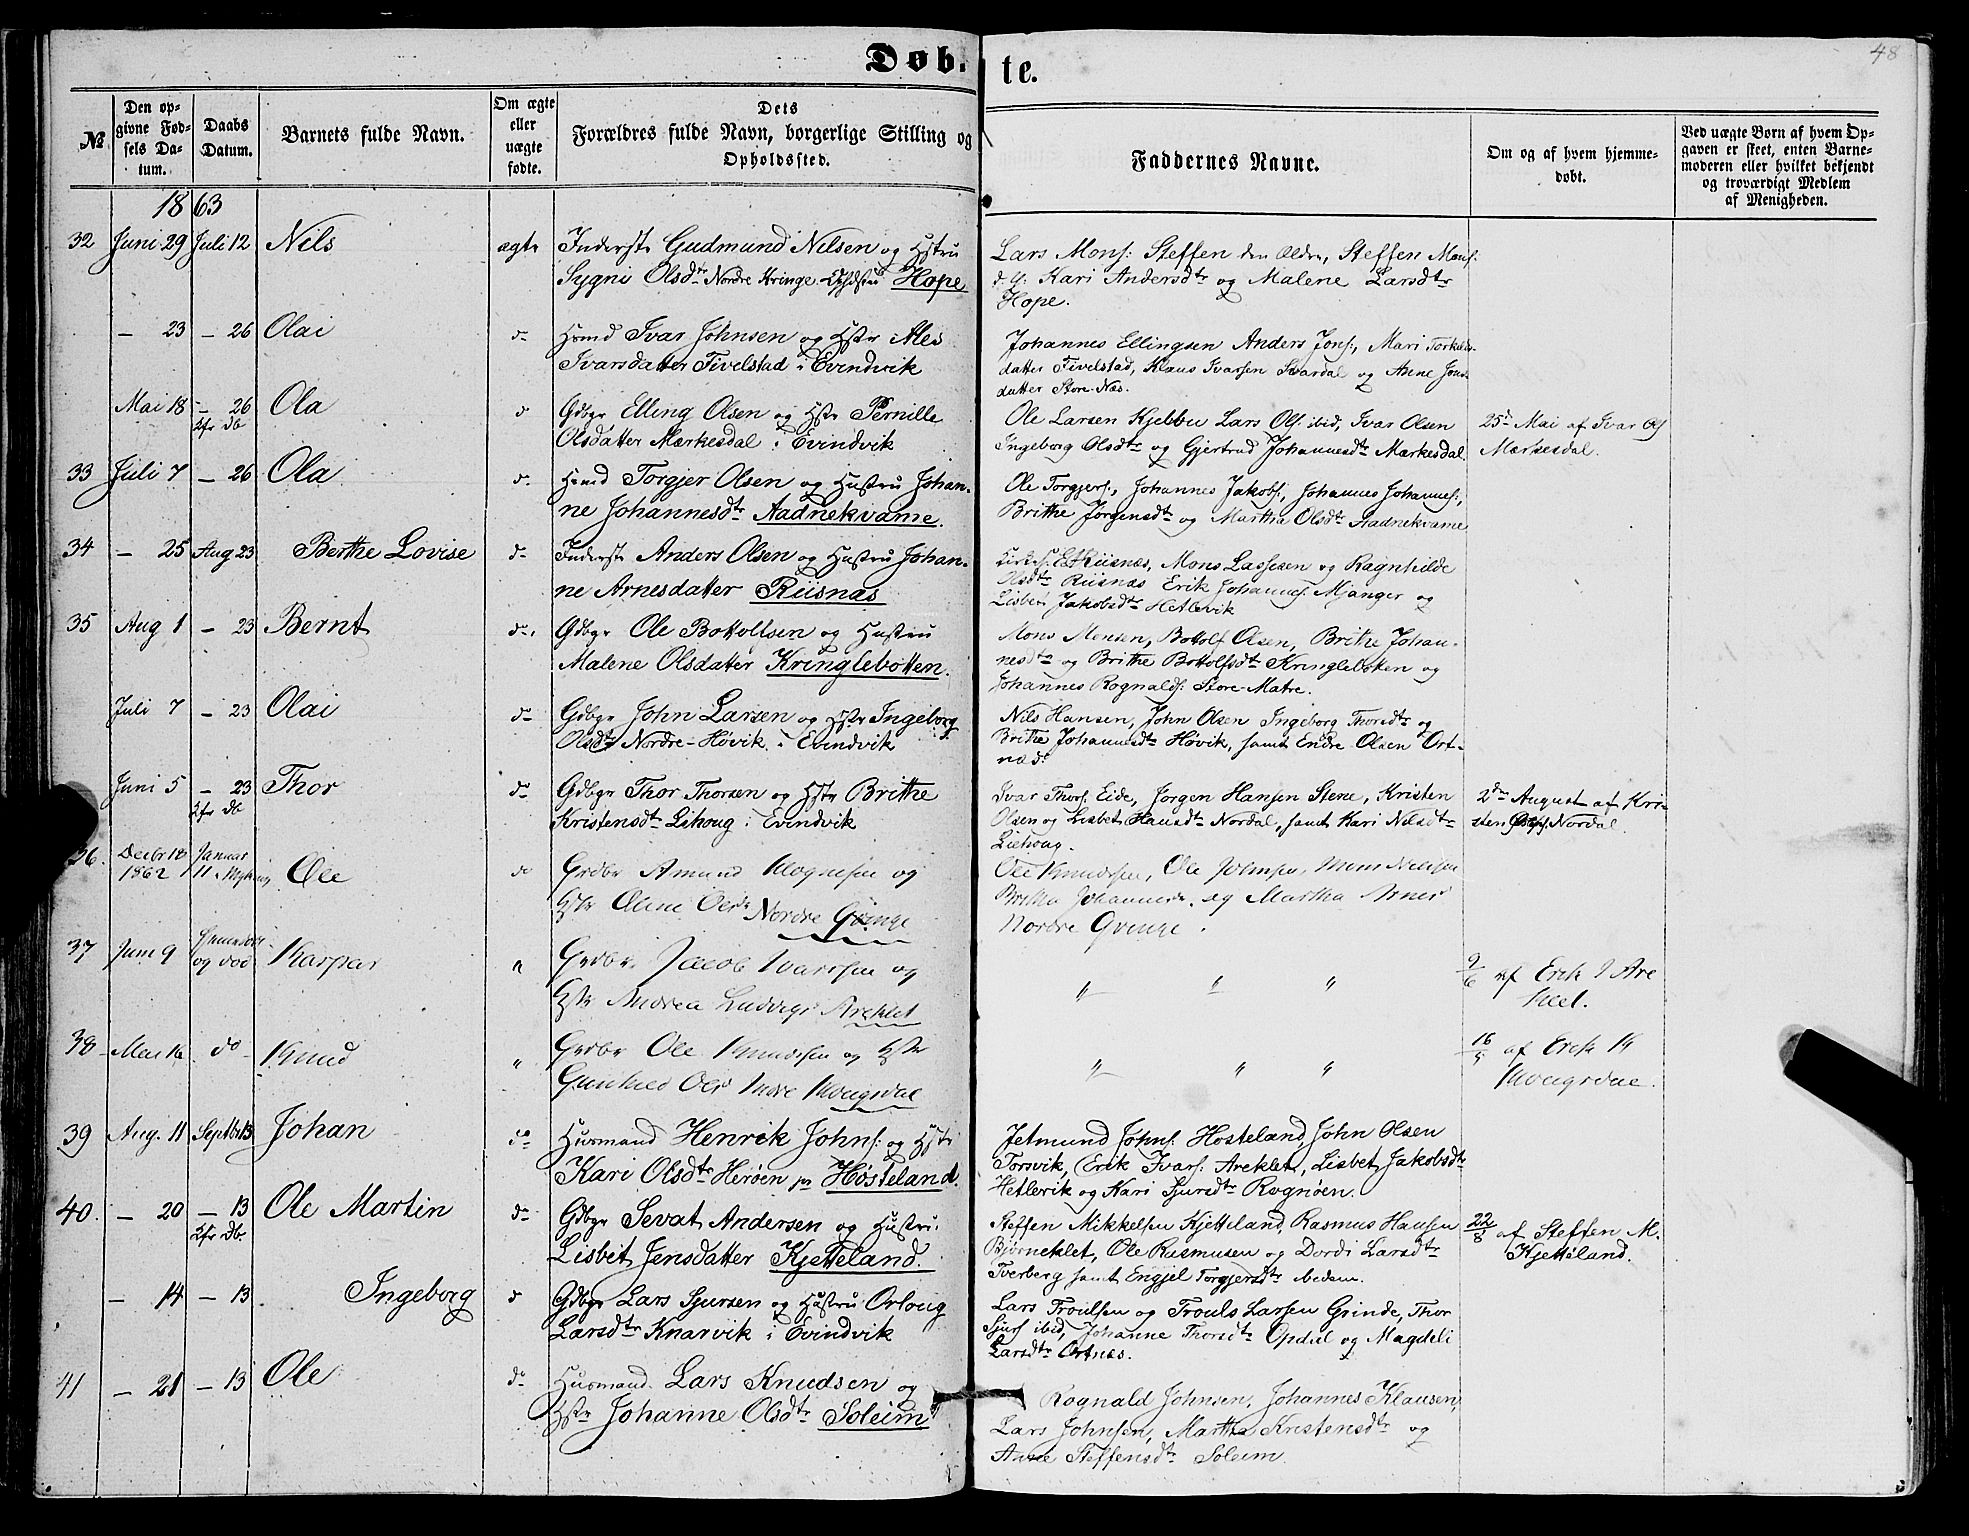 Døb-te.
48
№
Den opgivne Fødsels Datum.
Daabs Datum.
Barnets fulde Navn.
Om ægte eller uægte fødte.
Dets Forældres fulde Navn, borgerlige Stilling og Opholdssted.
Faddernes Navne.
Om og af hvem hjemmedøbt.
Ved uægte Børn af hvem Opgaven er skeet, enten Barnemoderen eller hvilket bekjendt og troværdigt Medlem af Menigheden.
1863
32 Juni 29 Juli 12 Nils ægte Inderste Gudmund Nilsen og Hstru
Sygni Olsdtr Nordre Hope
Lars Mons: Steffen den Ældre, Steffen Mons:
d. y. Kari Andersdtr og Malene Larsdtr
Hope.
– 23 – 26 Olai do Hsmd Ivar Johnsen og Hstr Ales
Ivarsdatter Tivelstad i Evindvik
Johannes Ellingsen Anders Jons:, Mari Torkels-
datter Tivelstad, Klaus Ivarsen Svardal og Anne Jons-
datter Store-Næs.
Mai 18 – 26 Ola do Gdbgr Elling Olsen og Hstr Pernille
Olsdatter Mærkesdal i Evindvik
Ole Larsen Kjebbu Lars Ols: ibid, Ivar Olsen
Ingeborg Olsdtr og Gjertrud Johannesdtr Mærkesdal.
25de Mai af Ivar Ols
Mærkesdal.
33 Juli 7 – 26 Ola do Hsmd Torgjer Olsen og Hustru Johan-
ne Johannesdtr Aadnekvame.
Ole Torgjers:, Johannes Jakobs:, Johannes Johannes:,
Brithe Jørgensdtr og Martha Olsdtr Aadnekvame
34 – 25 Aug 23 Berthe Lovise do Inderste Anders Olsen og Hustru Johan-
ne Arnesdatter Riisnæs
Riisnæs, Mons Lassesen og Ragnhilde
Olsdtr Riisnæs Erik Johannes: Mjanger og
Lisbet Jakobsdtr Hetlevik
35 Aug 1 – 23 Bernt do Gdbgr Ole Bottolfsen og Hustru
Malene Olsdatter Kringlebotten.
Mons Monsen, Bottolf Olsen, Brithe Johan-
nesdtr og Brithe Bottolfsdtr Kringleboten og
Johannes Rognalds: Store-Matre.
Juli 7 – 23 Olai do Gdbgr John Larsen og Hstr Ingeborg
Olsdtr Nordre-Høvik i Evindvik
Nils Hansen, John Olsen Ingeborg Thorsdtr og
Brithe Johannesdtr Høvik, samt Endre Olsen Ort-
næs.
Juni 5 – 23 Thor do Gdbgr Thor Thorsen og Hstr Brithe
Kristensdtr Lihoug i Evindvik
Ivar Thors: Eide, Jørgen Hansen Stene, Kristen
Olsen og Lisbet Hansdtr Nordal, samt Kari Nilsdtr
Liehoug.
2den August af Kri-
sten Ols: Nordal.
36. Decbr 18 1862 Januar 11 Ole do Grdbr Amund Mognesen og
Hstr Oline Olsdr Nordre Gvinge
Ole Knudsen, Ole Johnsen, Mons Nielsen
Britha Johannesd. og Martha Arnesd
Nordre Gvinge.
37 Juni 9 Kaspar " Grdbr. Jacob Ivarsen og
Hstr Andrea Ludvigsd Areklet
" " "
9/6 af Erik I Are
klet.
38 Mai 16 do Knud " Grdbr Ole Knudsen og Hstr
Gunhild Olsd Indre
" " "
16/5 af Erik K
39 Aug. 11 Septbr 13 Johan do Husmand Henrik Johns: og Hstr
Kari Olsdtr Herøen pr Høsteland.
Jetmund Johns: Hosteland, John Olsen
Torsvik, Erik Ivars: Areklet, Lisbet Jakobsdtr
Hetlevik og Kari Sjursdtr Rognøen.
40. – 20 – 13 Ole Martin do Gdbgr Sevat Andersen og Hustru
Lisbet Jensdatter Kjetteland.
Steffen Mikkelsen Kjetteland, Rasmus Hansen
Bjørneklet, Ole Rasmusen og Dordi Larsdtr
Tverberg samt Engjel Torgjersdtr ibidem.
22/8 af Steffen M.
Kjetteland.
– 14 – 13 Ingeborg do Gdbgr Lars Sjursen og Hustru Orloug
Larsdtr Knarvik i Evindvik
Lars Troulsen og Trouls Larsen Grinde, Thor
Sjurs: ibid, Johanne Thorsdtr Opdal og Magdeli
Larsdtr Ortnæs.
41 – 21 – 13 Ole do Husmand Lars Knudsen og
Hstr Johanne Olsdtr Soleim
Rognald Johnsen, Johannes Klausen,
Lars Johnsen, Martha Kristensdtr og
Anne Steffensdtr Soleim.